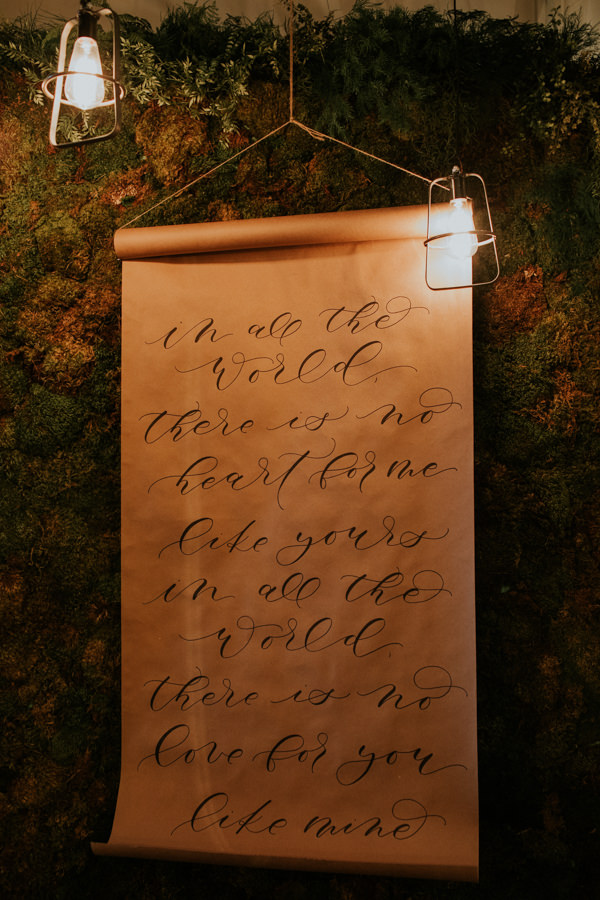 in all the
world,
there is no
heart for me
like yours
in all the
world,
there is no
love for you
like mine